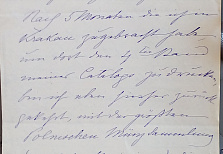 Nach 5 Monaten die ich in
Krakau zugebracht habe
um dort den 4ten Band
meines Catalogs zu drucken
bin ich eben hierher zurück
gekehrt, mit der größten
Polnischen Münzsammlung